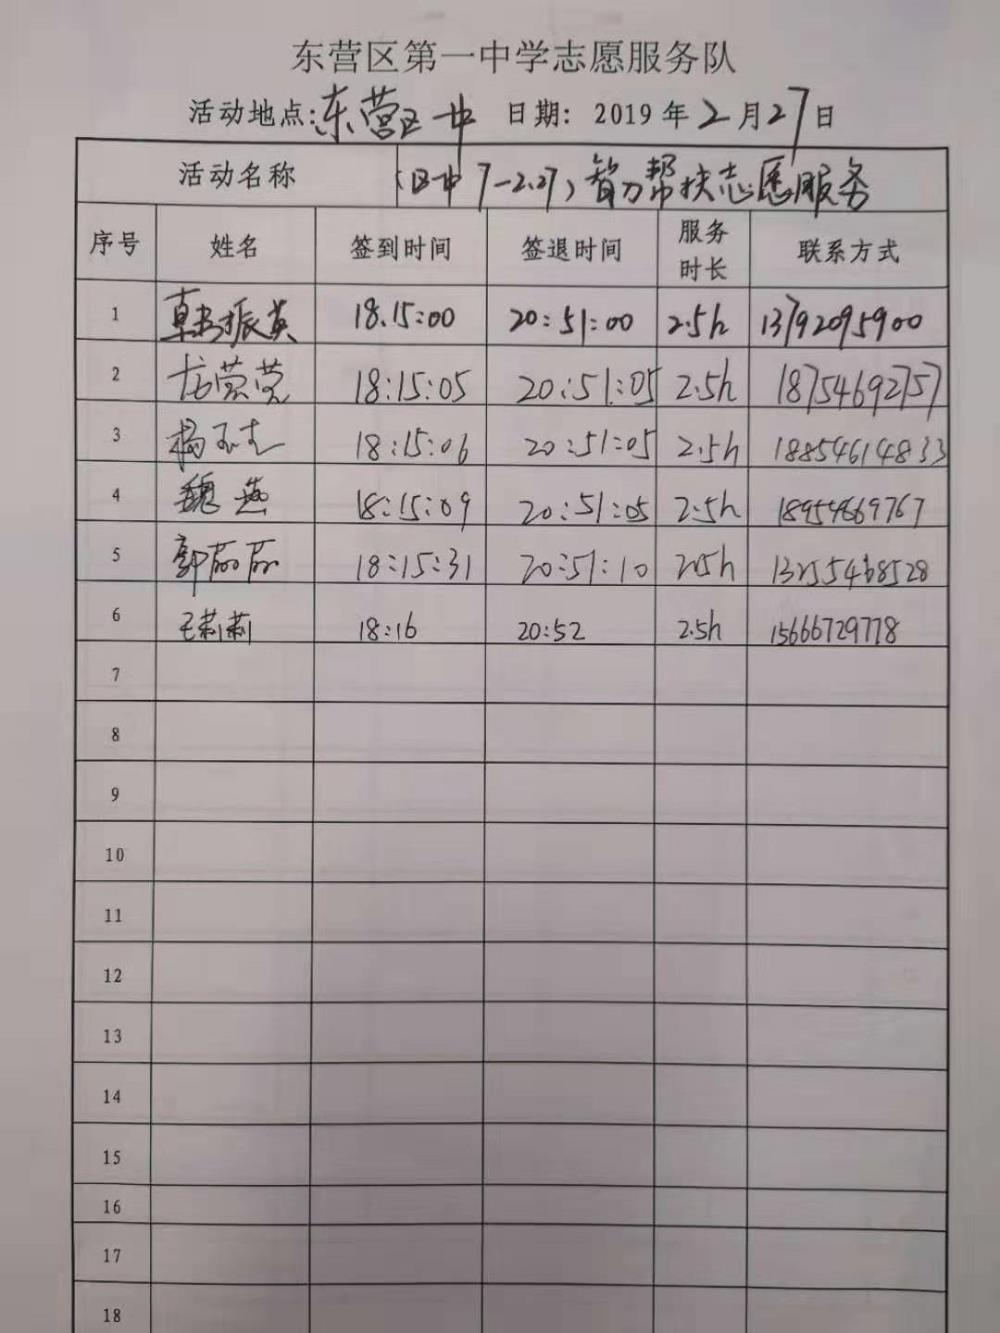 东营区第一中学志愿服务队
活动地点:东营区一中 日期: 2019年2月27日
活动名称 (区一中7-2.27)智力帮扶志愿服务
序号 姓名 签到时间 签退时间 服务时长 联系方式
1 韩振英 18.15:00 20:51:00 2.5h 13792095900
2 18:15:05 20:51:05 2.5h 18754692757
3 杨玉志 18:15:06 20:51:05 2.5h 18854614833
4 魏燕 18:15:09 20:51:05 2.5h 18954669767
5 郭丽丽 18:15:31 20:51:10 2.5h 13255468528
6 王莉莉 18:16 20:52 2.5h 15666729778
7
8
9
10
11
12
13
14
15
16
17
18